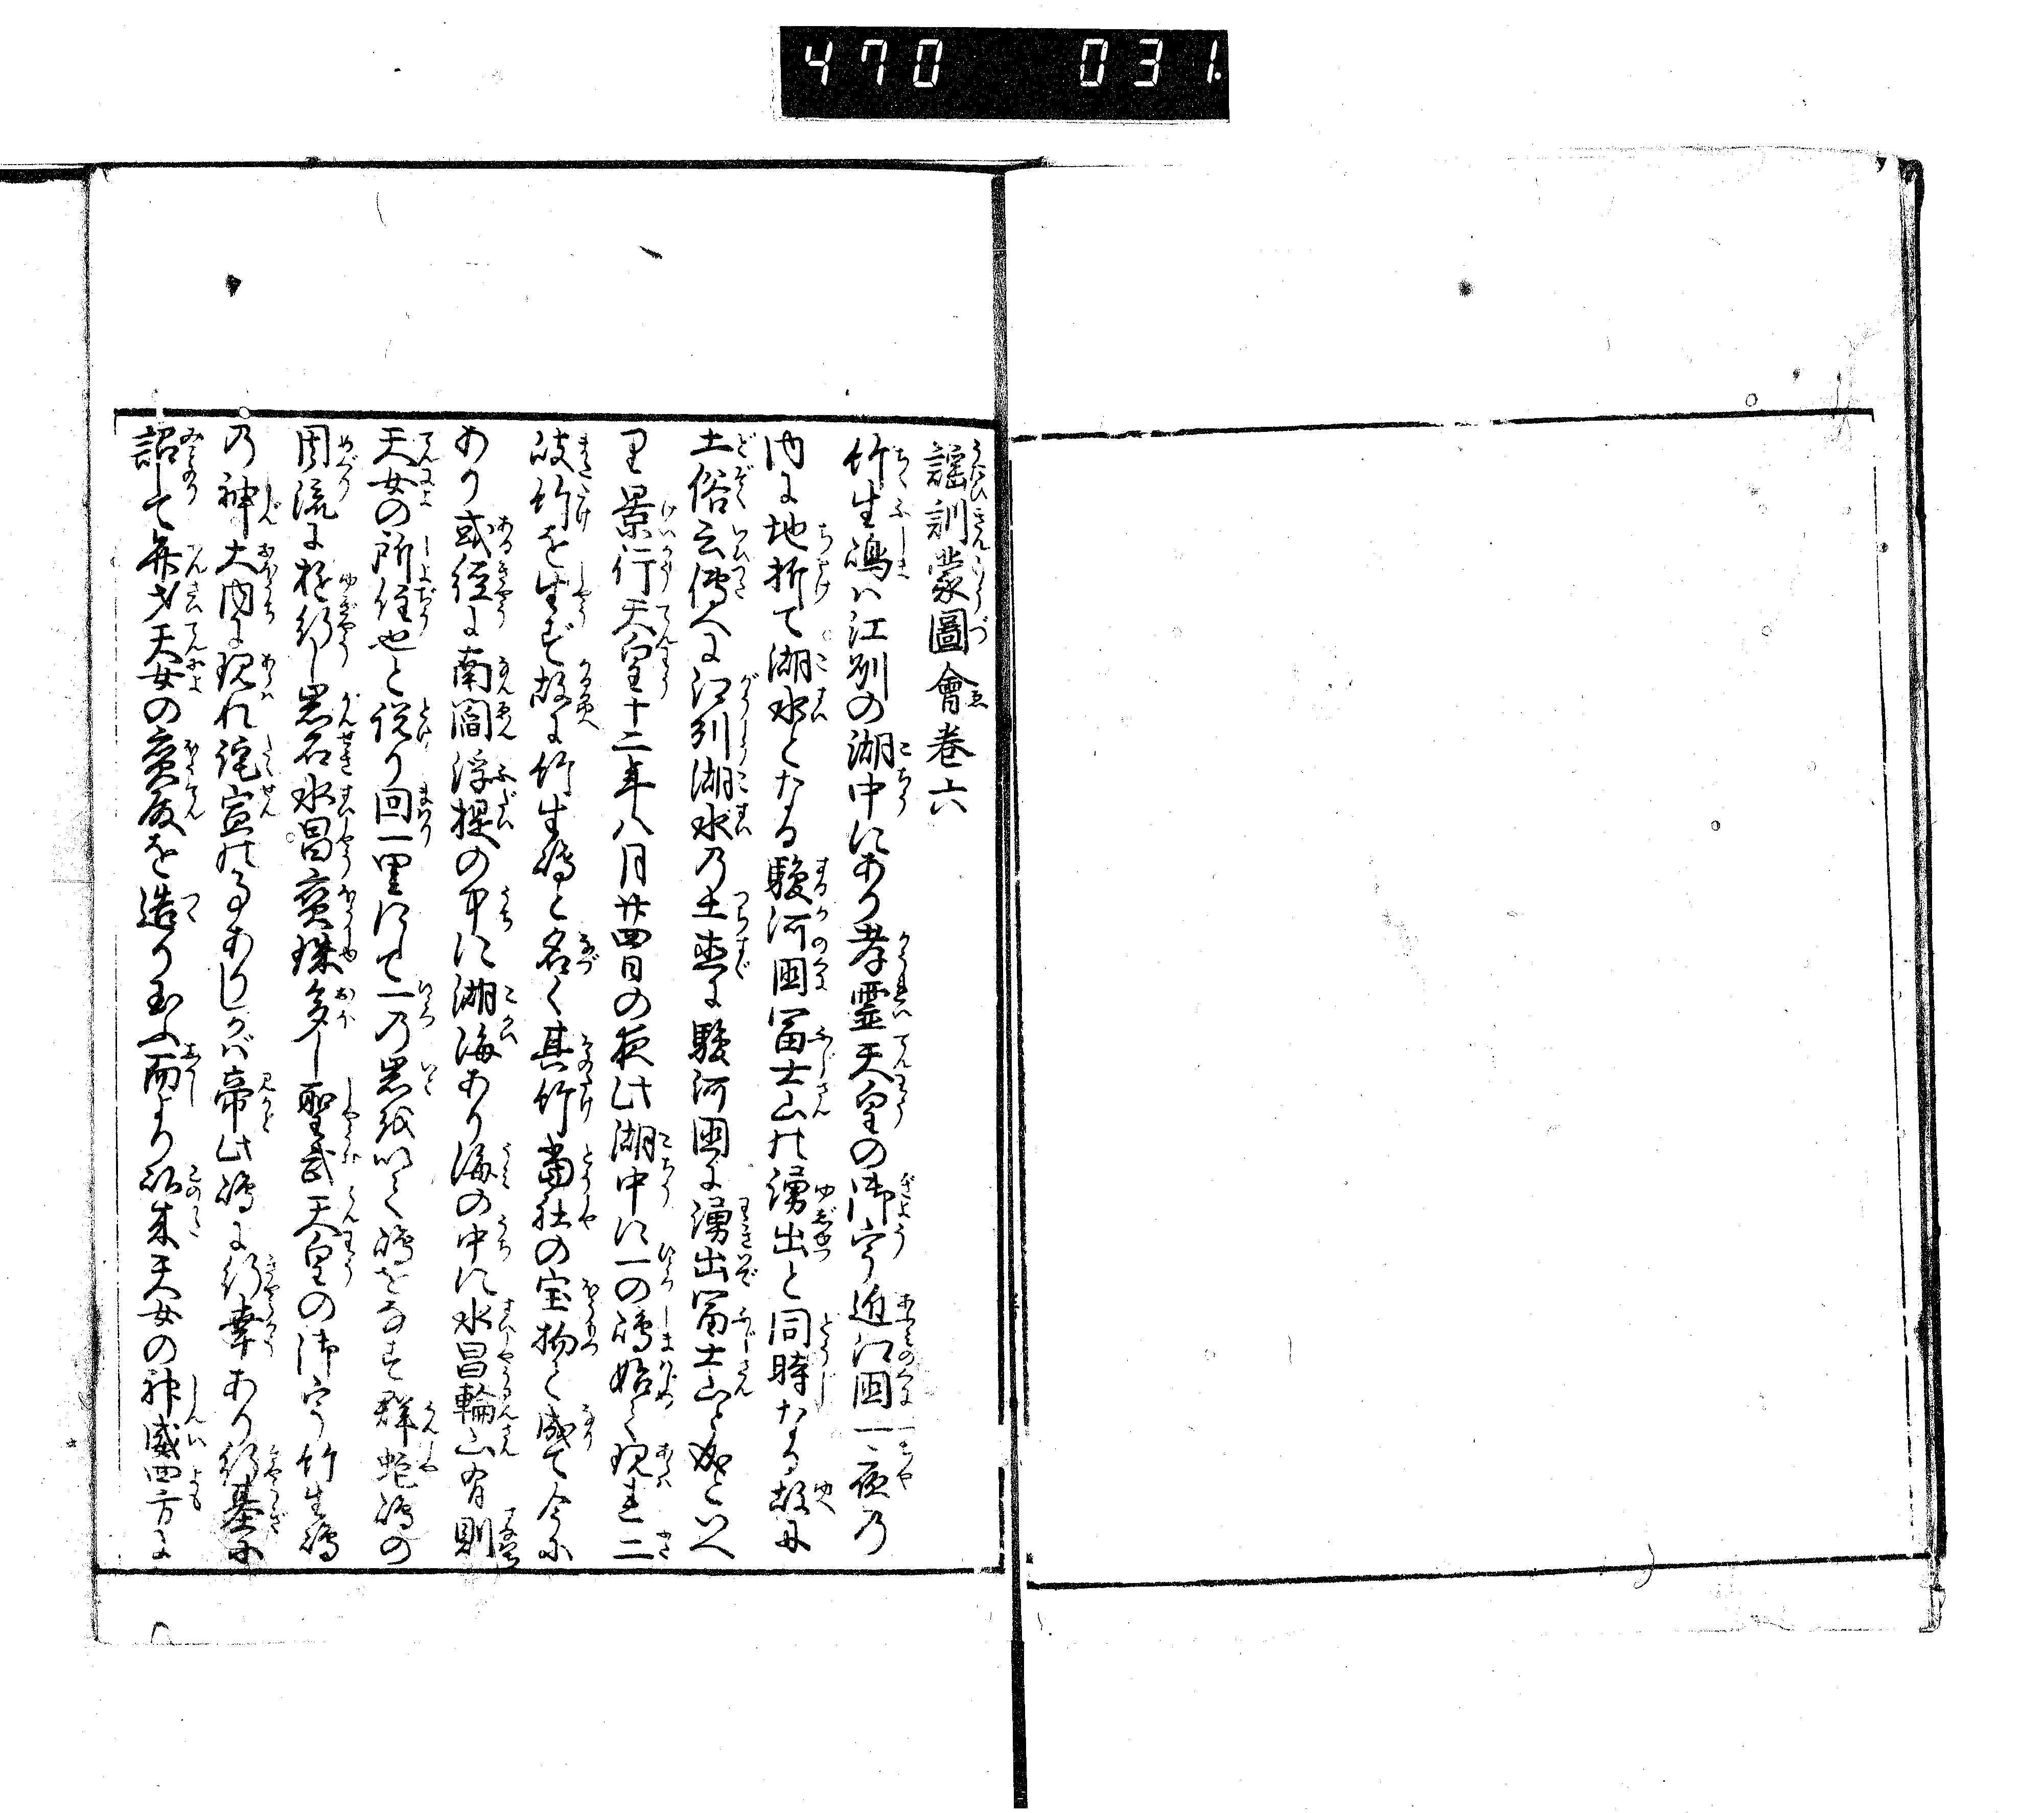 470 031.
謡訓蒙圖會巻六
竹生嶋ハ江州の湖中にあり孝霊天皇の御宇近江国一夜乃
内に地折て湖水となる駿河国冨士山は湧出と同時なる故に
土俗云傳へに江州湖水乃土壱に駿河国に湧出冨士山と成といへ
里景行天皇十二年八月廿四日の夜此湖中に一の嶋始て現呈二
岐竹を生ず故に竹生嶋と名く其竹當社の宝物と成て今に
あり或経に南閻浮提の中に湖海あり海の中に水昌輪山有則
天女の所住也と説り回一里にして一乃岩を以て嶋をなす群蛇嶋の
周流に遊行し岩石水昌寳珠多し聖武天皇の御宇竹生嶋
乃神大内に現れ詫宣の事ありしかバ帝此嶋に行幸あり行基に
詔して弁才天女の寳殿を造り玉ふ而より以来天女の神威四方に